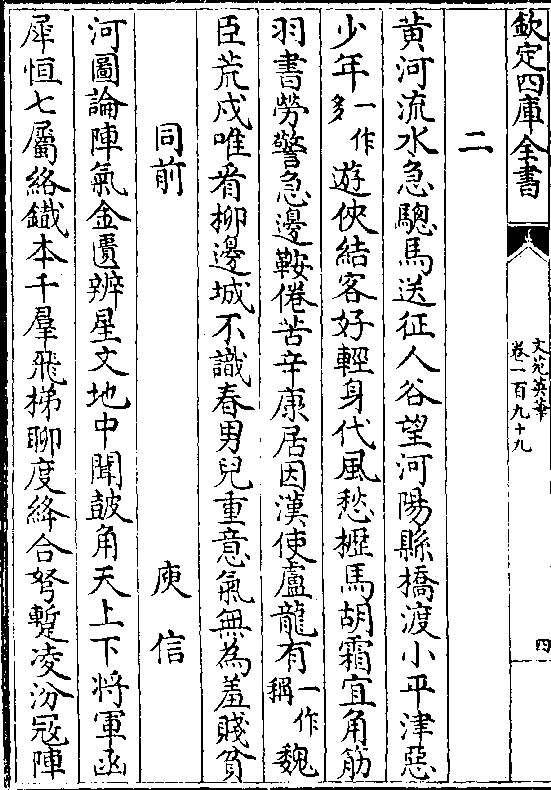 欽定四庫全書
文苑英華
卷一百九十九
四
二
黄河流水急驄馬送征人谷望河陽縣橋渡小平津惡
少年一作多遊俠結客好輕身代風愁櫪馬胡霜宜角筋
羽書勞警急邊鞍倦苦辛康居因漢使盧龍有一作稱魏
臣荒戍唯看柳邊城不識春男兒重意氣無為羞賤貧
同前 庾信
河圖論陣氣金匱辨星文地中聞皷角天上下將軍函
犀恒七屬絡鐵本千羣飛梯聊度絳合弩暫凌汾冦陣